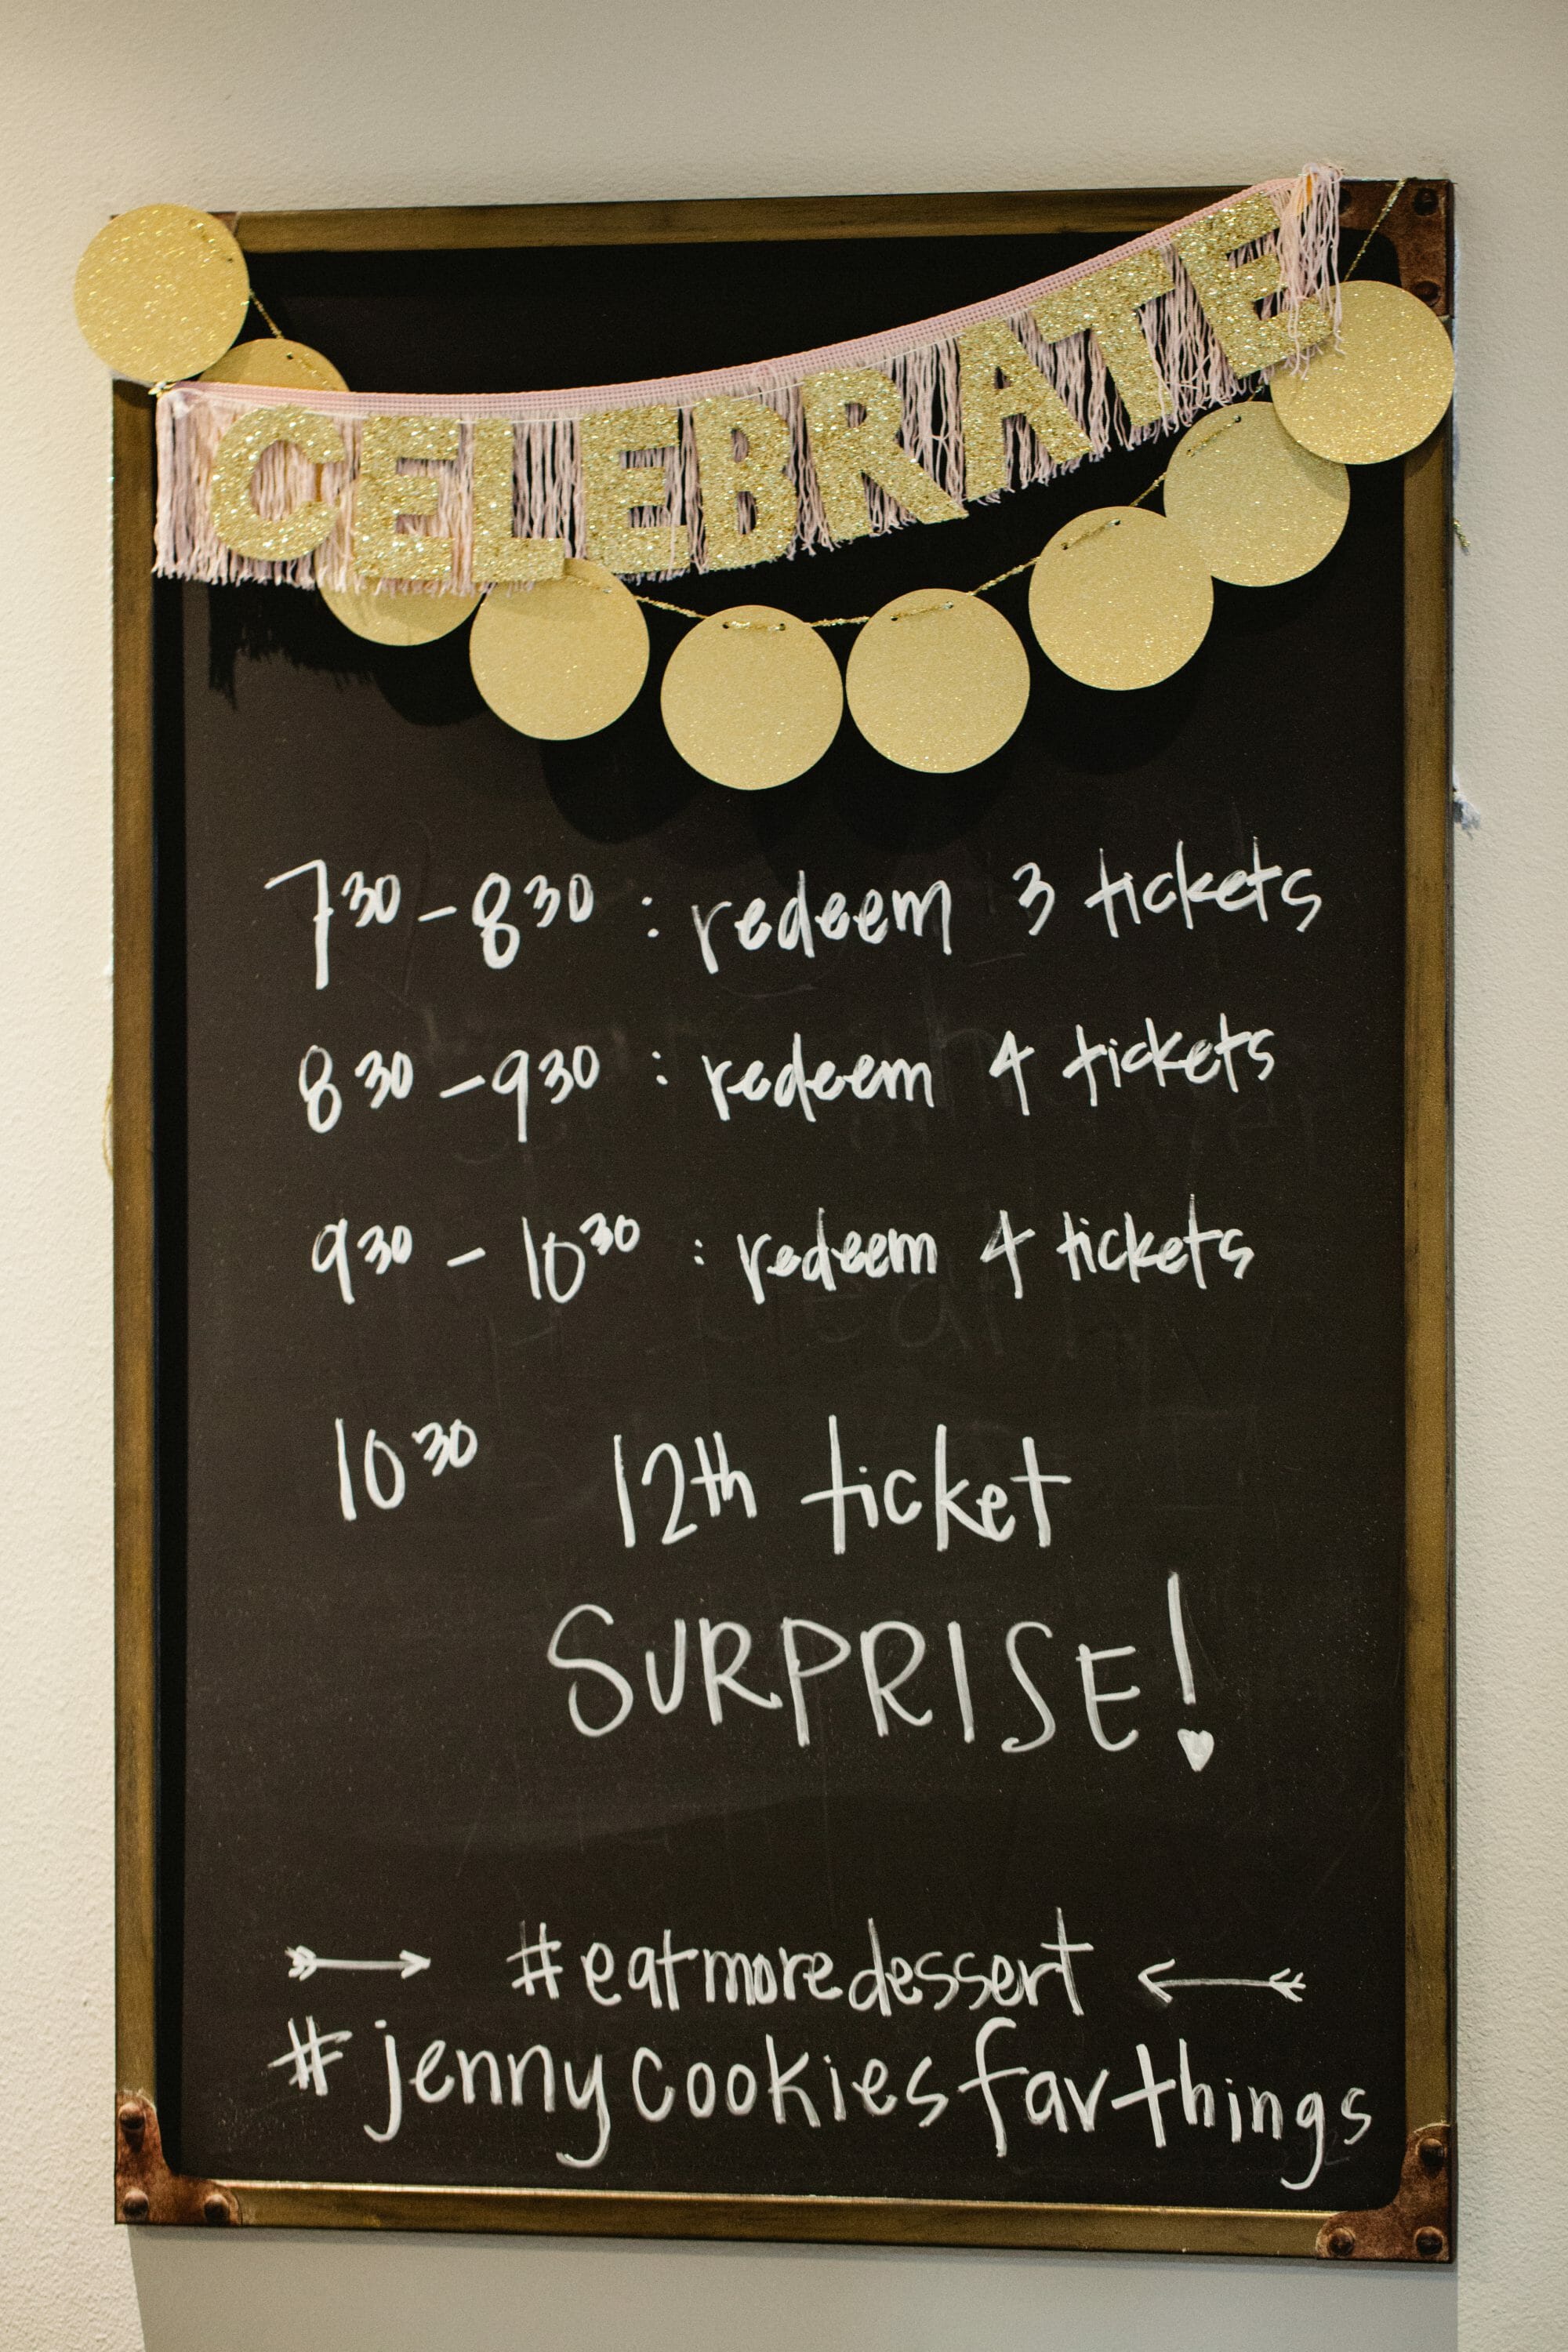 CELEBRATE
7³⁰ - 8³⁰ : redeem 3 tickets
8³⁰ - 9³⁰ : redeem 4 tickets
9³⁰ - 10³⁰ : redeem 4 tickets
10³⁰ 12th ticket
SURPRISE!
#eatmoredessert
#jennycookiesfavthings